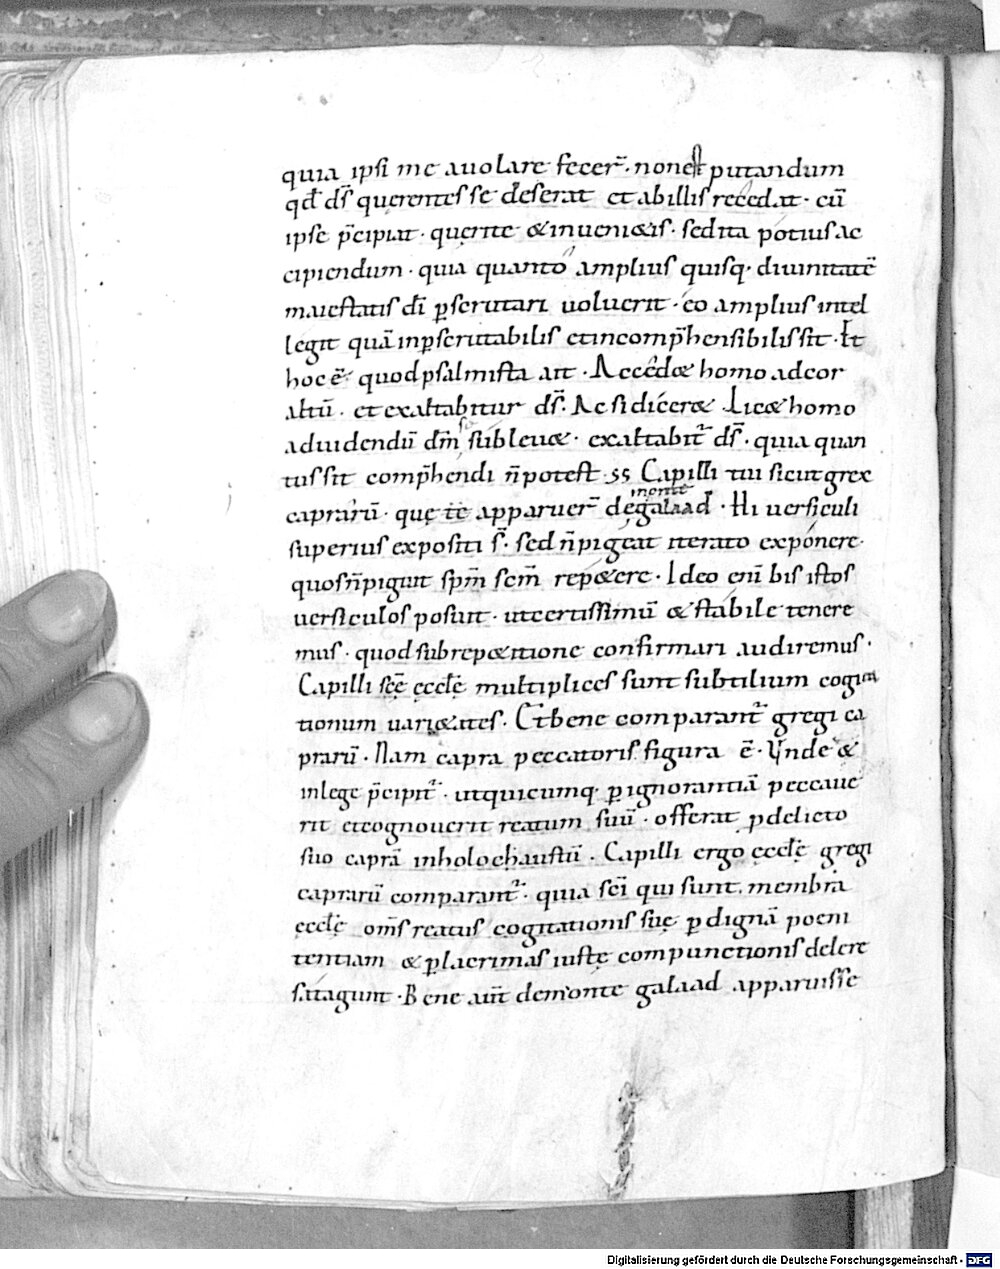 quia ipsi me auolare fecer̄· non est putandum
qđ ds̄ querentes se deserat et ab illis recedat· cū
ipse p̄cipiat· querite & inueni&is· sed ita potius ac
cipiendum· quia quanto amplius quisq· diuinitatē
maiestatis dī ꝑscrutari uoluerit· eo amplius intel
legit quā inꝑscrutabilis et incomp̄hensibilis sit· Et
hoc ē· quod psalmista ait· Accedæ homo ad cor
altū· et exaltabitur ds̄· Ac si diceræ· Licæ homo
ad uidendū dm̄ se subleuæ· exaltabit᷑ ds̄· quia quan
tus sit comp̄hendi n̄ potest· ss Capilli tui sicut grex
caprarū· quę
apparuer̄ de monte galaad· Hi uersiculi
superius expositi s̄· sed n̄ pigeat iterato exponere·
quos n̄ piguit spm̄ scm̄ rep&ere· Ideo enī bis istos
uersiculos posuit· ut certissimū & stabile tenere
mus· quod sub repætitione confirmari audiremus·
Capilli scę̄ ęccłę multiplices sunt subtilium cogita
tionum uari&ates· Et bene comparant᷑ gregi ca
prarū· Nam capra peccatoris figura ē· Unde &
in lege p̄cipit᷑· ut quicumq· ꝑ ignorantiā peccaue
rit et cognouerit reatum suū· offerat p delicto
suo caprā in holochaustū· Capilli ergo ęccłę gregi
caprarū comparant᷑· quia scī qui sunt membra
ęccłę om̄s reatus cogitationis suę ꝑ dignā poeni
tentiam & ꝑ lacrimas iustę compunctionis delere
satagunt· Bene aut̄ de monte galaad apparuisse
Digitalisierung gefördert durch die Deutsche Forschungsgemeinschaft - DFG